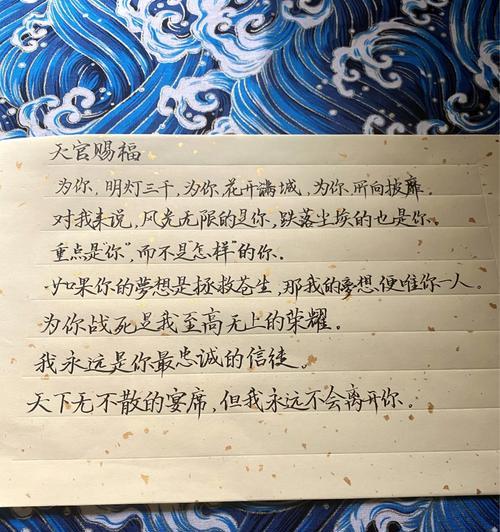 天官赐福
为你，明灯三千，为你，花开满城，为你，所向披靡。
对我来说，风光无限的是你，跌落尘埃的也是你。
重点是“你”，而不是“怎样”的你。
如果你的夢想是拯救苍生，那我的夢想，便唯你一人。
为你战死是我至高无上的荣耀。
我永远是你最忠诚的信徒。
天下无不散的宴席，但我永远不会离开你。